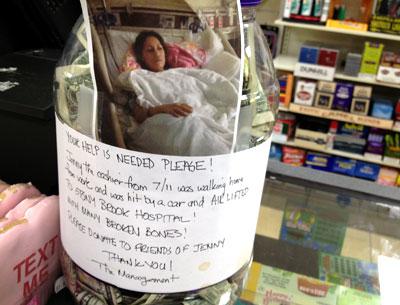 YOUR HELP IS NEEDED PLEASE!
Jenny the cashier from 7/11 was walking home
from work and was hit by a car and AIR LIFTED
TO STONY BROOK HOSPITAL!
WITH MANY BROKEN BONES!
PLEASE DONATE TO FRIENDS OF JENNY
THANK YOU!
The Management
TEXT
ME
DUNHILL